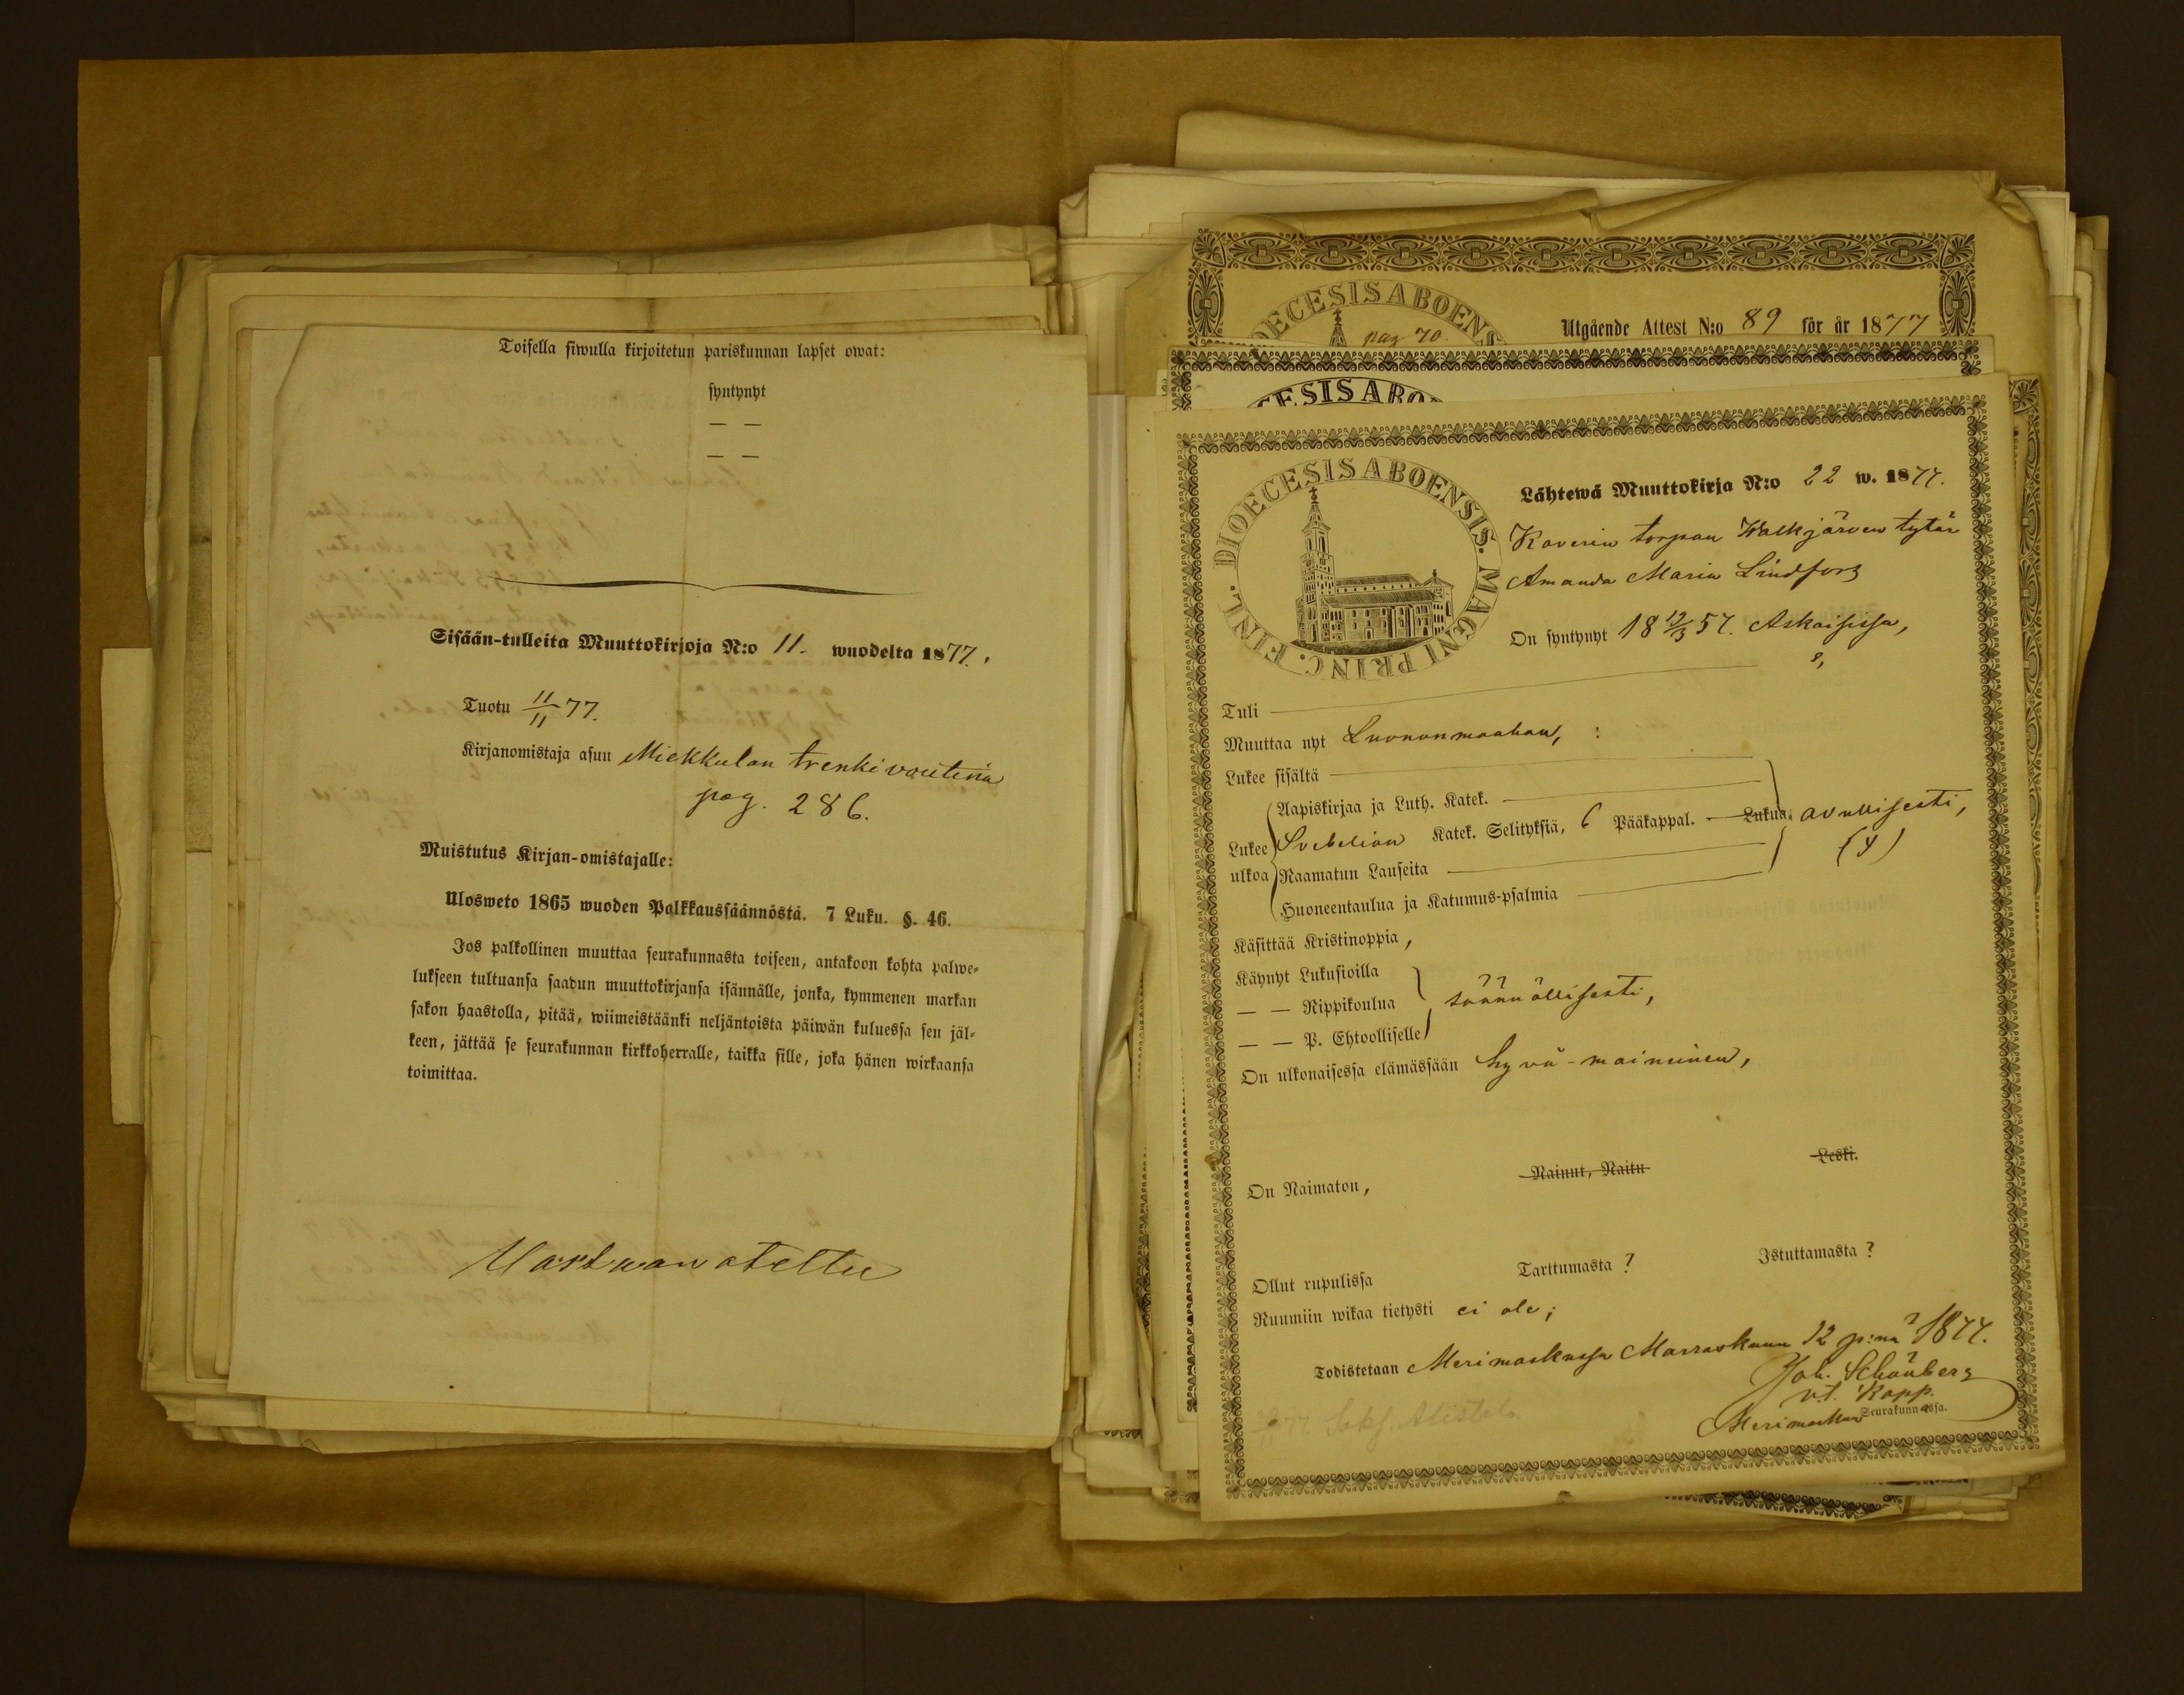 Toisella siwulla kirjoitetun pariskunnan lapset owat:
syntynyt
— —
— —
Sisään-tulleita Muuttokirjoja N:o 11. wuodelta 1877.
Tuotu 11/11 77.
Kirjanomistaja asuu Miekkulan trenkivoutina
pag. 286.
Muistutus Kirjan-omistajalle:
Ulosweto 1865 wuoden Palkkaussäännöstä. 7 Luku. §. 46.
Jos palkollinen muuttaa seurakunnasta toiseen, antakoon kohta palwe-
lukseen tultuansa saadun muuttokirjansa isännälle, jonka, kymmenen markan
sakon haastolla, pitää, wiimeistäänki neljäntoista päiwän kuluessa sen jäl-
keen, jättää se seurakunnan kirkkoherralle, taikka sille, joka hänen wirkaansa
toimittaa.
Vastaanotettu
DIOECESIS ABOENS
pag 70.
Utgående Attest N:o 89 för år 1877
CESIS ABO
FINL. DIOECESIS ABOENSIS. MAGNI PRINC.
Lähtewä Muuttokirja N:o 22 w. 1877.
Kaverin torpan Walkjärven tytär
Amanda Maria Lindfors
On syntynyt 18 12/3 57. Askaisissa,
Tuli
Muuttaa nyt Luononmaahan,
Lukee sisältä
Lukee ulkoa
Aapiskirjaa ja Luth. Katek.
Svebelion Katek. Selityksiä, 6 Pääkappal. — Lukua. avullisesti,
(4)
Raamatun Lauseita
Huoneentaulua ja Katumus-psalmia
Käsittää Kristinoppia,
Käynyt Lukusioilla
— — Rippikoulua säännöllisesti,
— — P. Ehtoolliselle
On ulkonaisessa elämässään hyvä-maineinen,
On Naimaton, Nainut, Naitu Leski.
Ollut rupulissa Tarttumasta ? Istuttamasta ?
Ruumiin wikaa tietysti ei ole;
Todistetaan Merimaskussa Marraskuun 12 p:nä 1877.
Joh. Schönberg
v.t. Kapp.
Merimaskun Seurakunnassa.